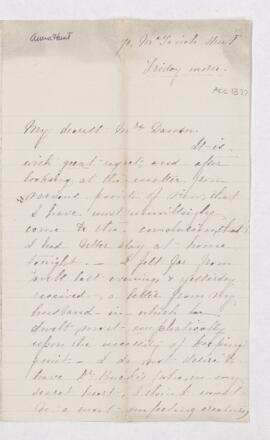 Anna Hunt
70, McTavish Street
Friday morn.
Dec 1877
My dearest Mrs Dawson
It is
with great regret, and after
looking at the matter from
various points of view, that
I have most unwillingly
come to the conclusion that
I had better stay at home
tonight. – I felt far from
well last evening & yesterday
received a letter from my
husband in which he
dwelt most emphatically
upon the necessity of keeping
quiet – I do not desire to
leave Dr
secret heart, I think
is a most